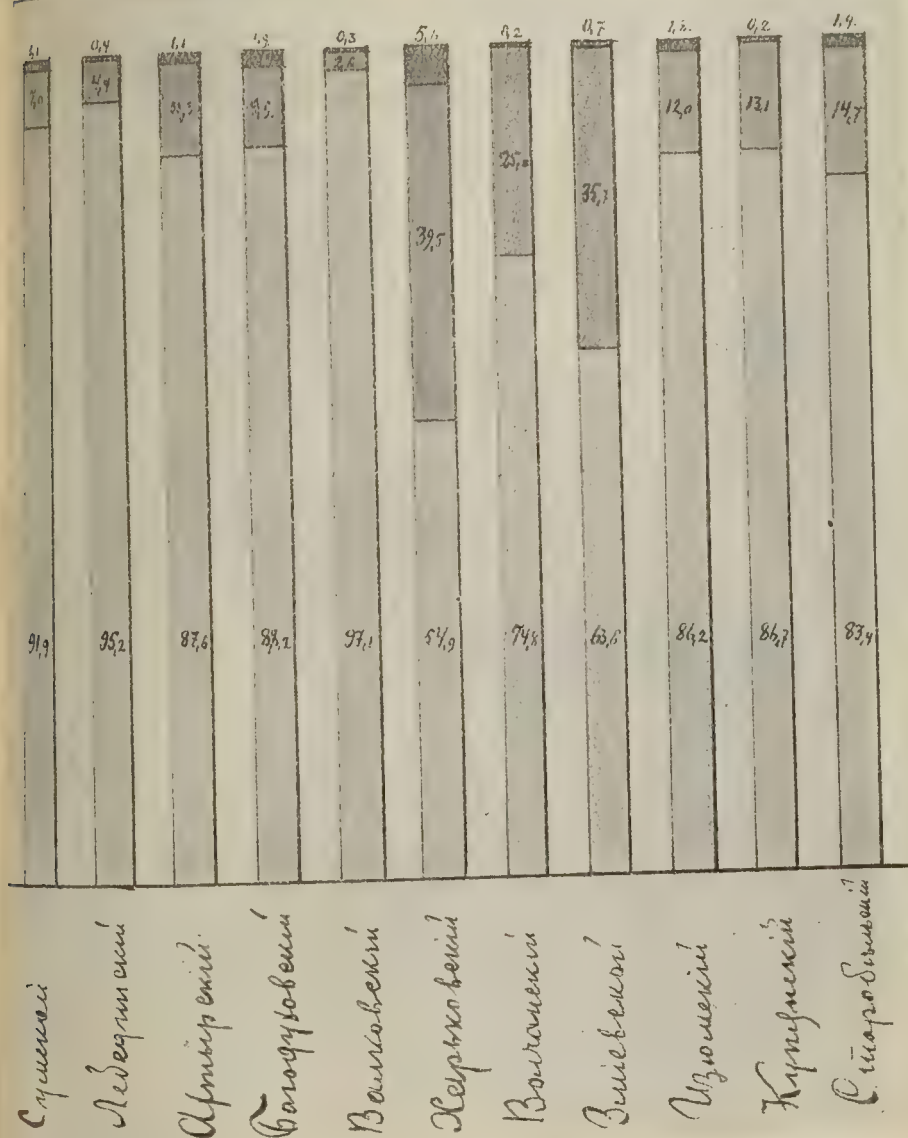 1,1 0,4 1,1 1,9. 0,3 5,1 0,2 0,7 1,8. 0,2 1,9.
7,0 4,4 9,5. 2,6 39,5 35,7 12,0 13,1 14,7
91,9 95,2 87,6 88,2 97,1 54,9 74,8 63,6 86,2 86,7 83,4
Сумской
Лебединский
Ахтырский.
Богодуховский
Валковский
Харьковский
Волчанский
Змиевской
Изюмский
Купянский
Старобѣльский